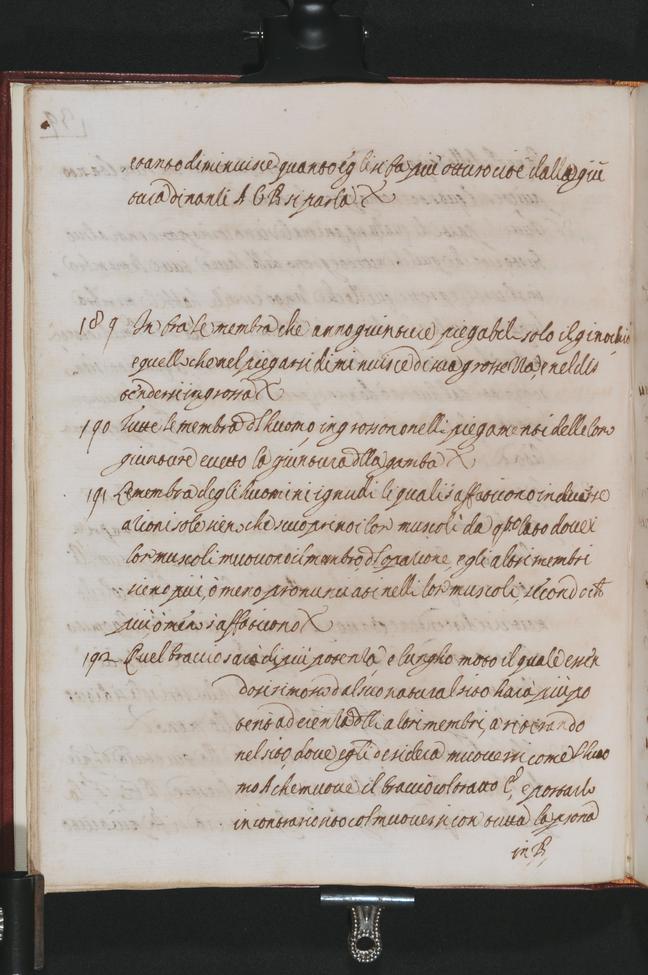 e tanto diminuisce quanto egli si fà più oscuro cioè dalla giũ
tura dinanti A G B si parla X
189 In fra le membra che anno giunture piegabili solo il ginochio
e quello che nel piegarsi diminuisce di sua grossezza, e nel dis
tendersi ingrossa X
190 Tutte le membra dl'huomo ingrossono nelli piegamenti delle loro
giunture eccetto la giuntura dlla gamba X
191 Le membra degli huomini ignudi li quali s'affaticono in diverse
ationi sole sieno che scuoprino i lor muscoli da qto lato dove i
lor muscoli muovono il membro dl'oratione, e gli altri membri
sieno più, ò meno pronunciati nelli lor muscoli, secondo ch
più, ò meno s'affaticono X
192 Quel braccio sarà di più potentà, e lungho moto il quale essen
dosi rimosso dal suo natural sito harà più po
tente aderentia dlli altri membri, a ritirarlo
nel sito, dove egli desidera muoversi come l'huo
mo A che muove il braccio col tratto C, e portarlo
in contrario sito col muoversi con tutta la psona
in B,